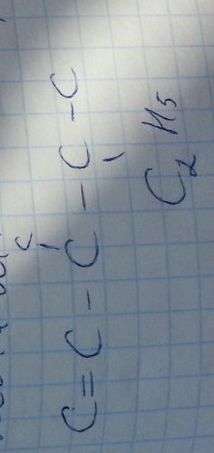 C
|
C=C–C–C–C
|
C₂H₅